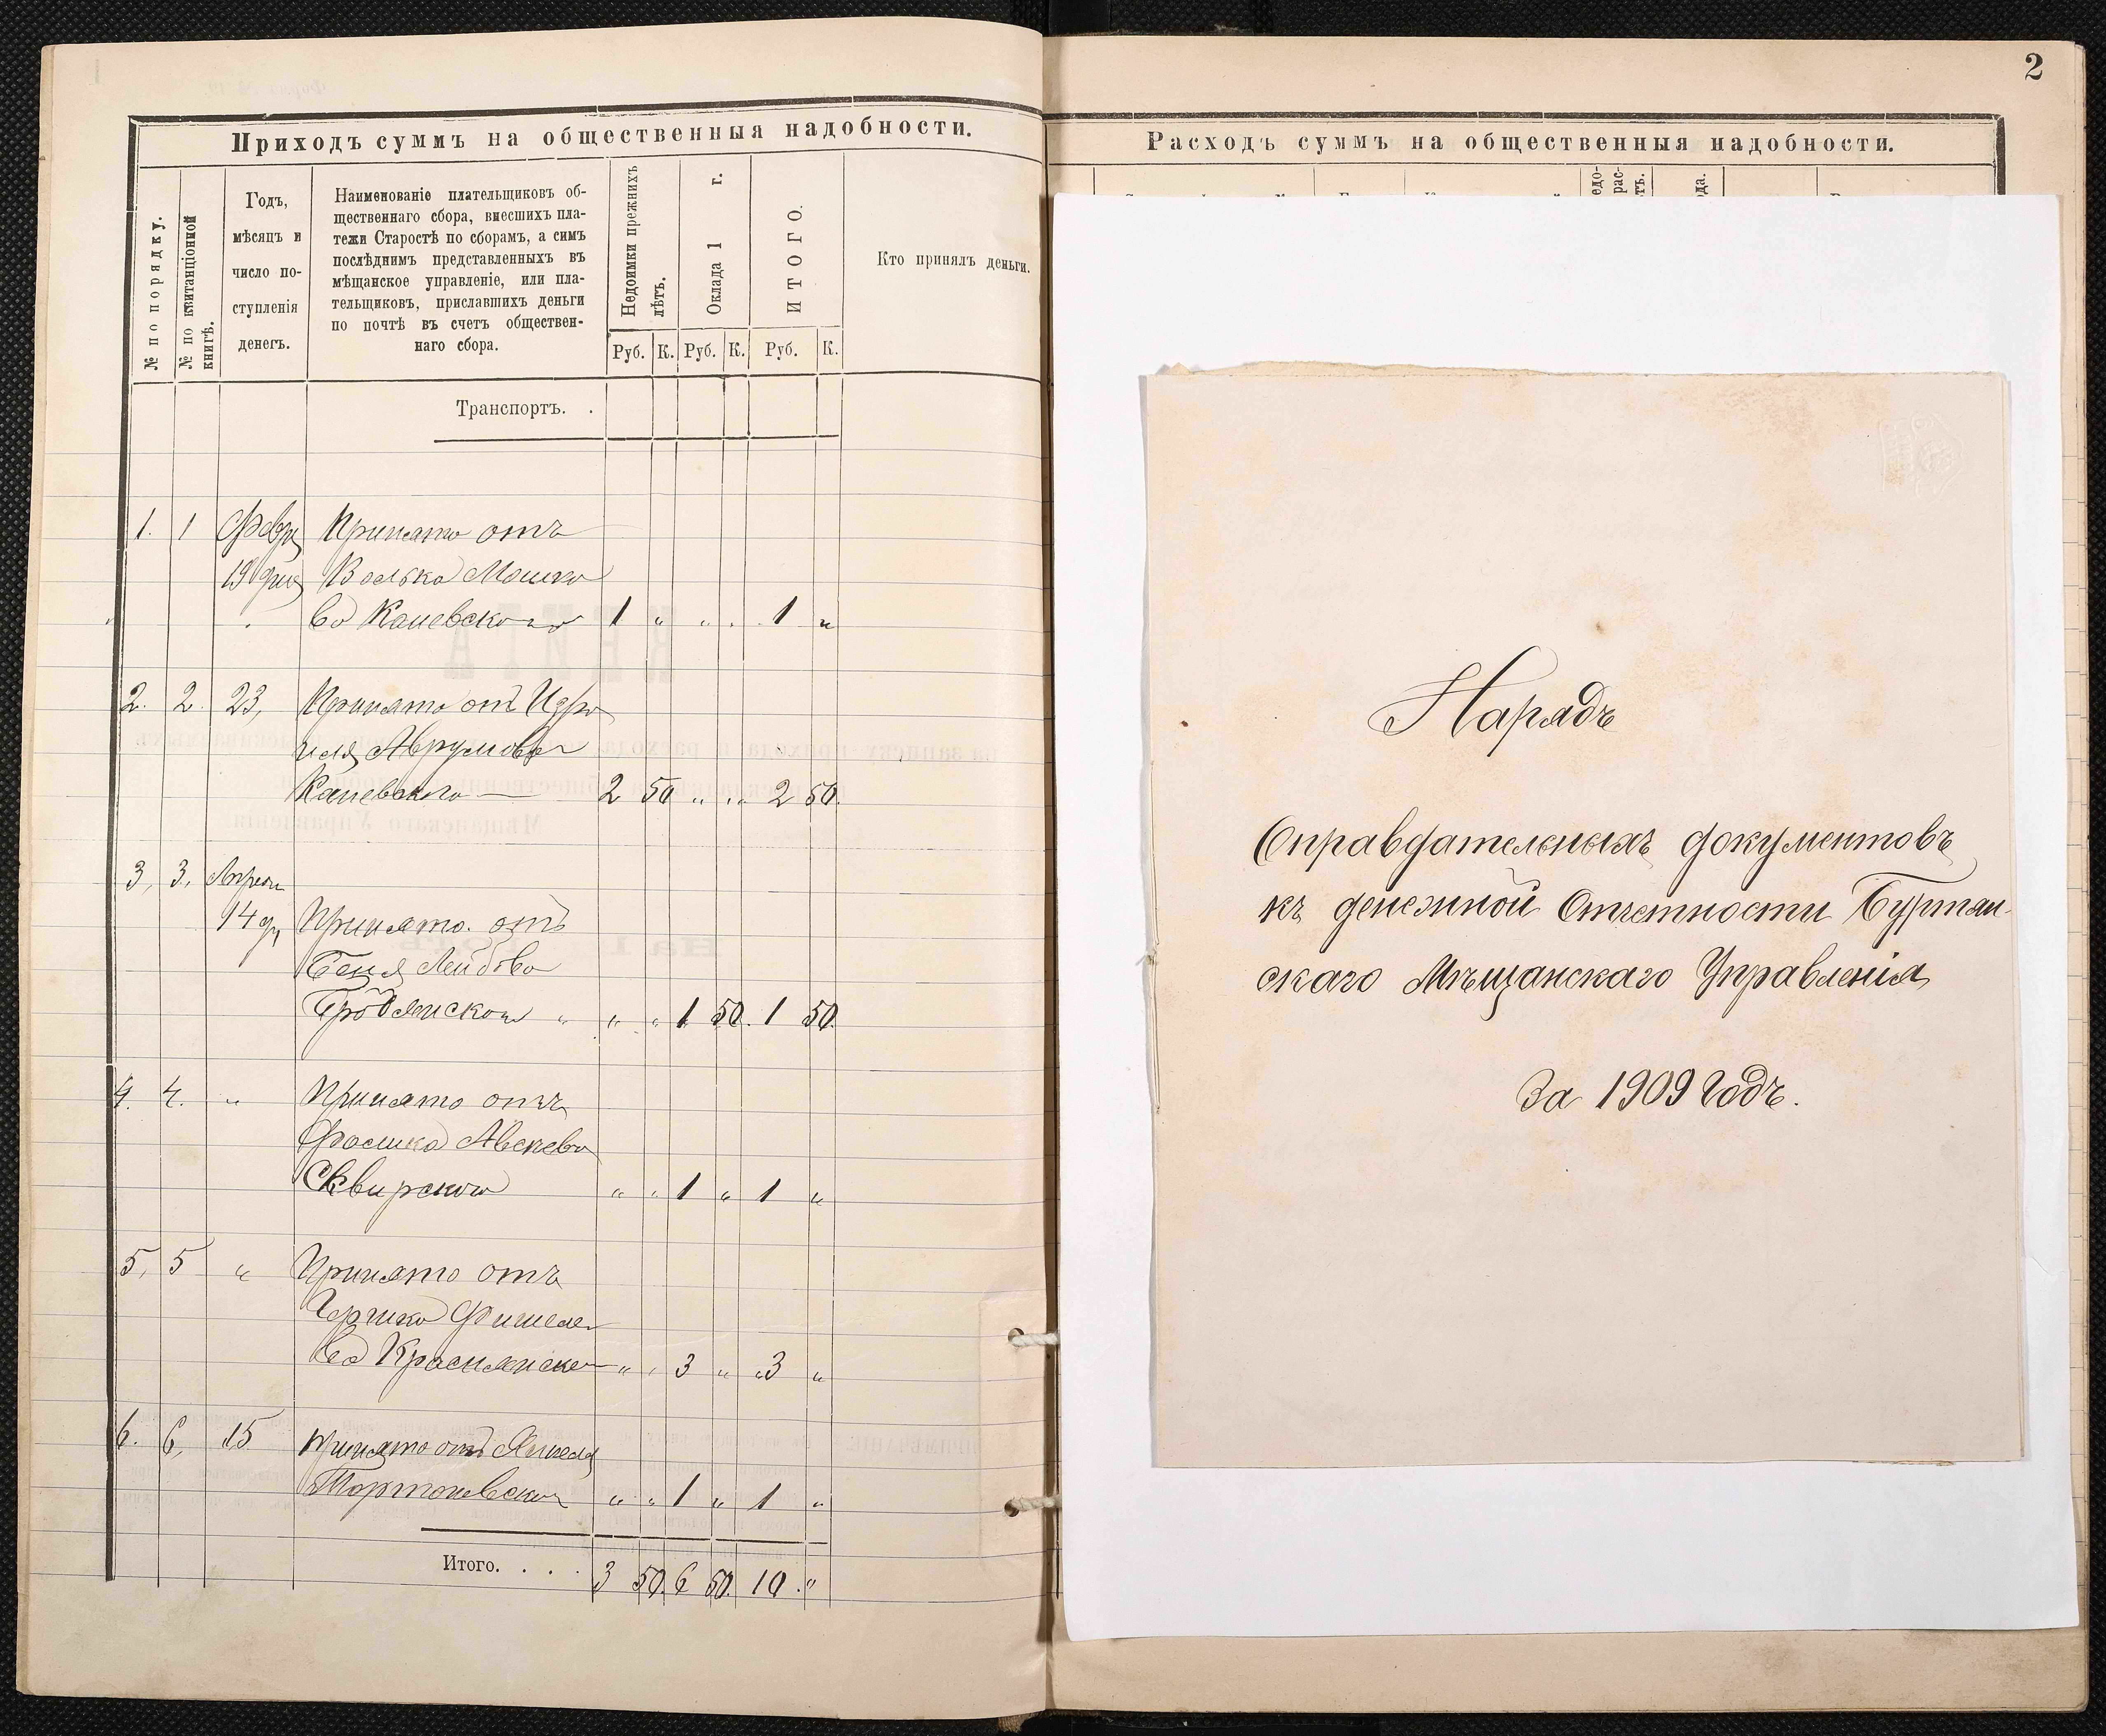 2
Приходъ суммъ на общественныя надобности.
№ по порядку.
№ по квитанціонной
книгѣ.
Годъ,
мѣсяцъ и
число по-
ступленія
денегъ.
Наименованіе плательщиковъ об-
щественнаго сбора, внесшихъ пла-
тежи Старостѣ по сборамъ, а симъ
послѣднимъ представленныхъ въ
мѣщанское управленіе, или пла-
тельщиковъ, приславшихъ деньги
по почтѣ въ счетъ обществен-
наго сбора.
Недоимки прежнихъ
лѣтъ.
Оклада 1 г.
ИТОГО.
Кто принялъ деньги.
Руб. К. Руб. К. Руб. К.
Транспортъ. .
1. 1 Февр Принято отъ
19 дня Волька Мошко
ва Каневского 1 „ „ . 1 „
2. 2. 23, Принято отъ Изра
иля Аврумова
Каневского — 2 50 „ „ 2 50.
3, 3, Апрел
14 д, Принято. отъ
Беня Лейбова
Бродянского „ „ „ 1 50. 1 50.
4. 4. „ Принято отъ
Сквирского „ „ 1 „ 1 „
5, 5 „ Принято отъ
Гершка Фишеле
ва Краснянско „ „ 3 „ „3 „
6. 6, 15 Принято отъ Янкеля
„ „ 1 „ 1 „
Итого. . . . 3 50. 6 50. 10 . „
Расходъ суммъ на общественныя надобности.
Нарядъ
Оправдательныхъ документовъ
къ денежной Отчетности Буртян-
скаго Мѣщанскаго Управленія
За 1909 годъ.